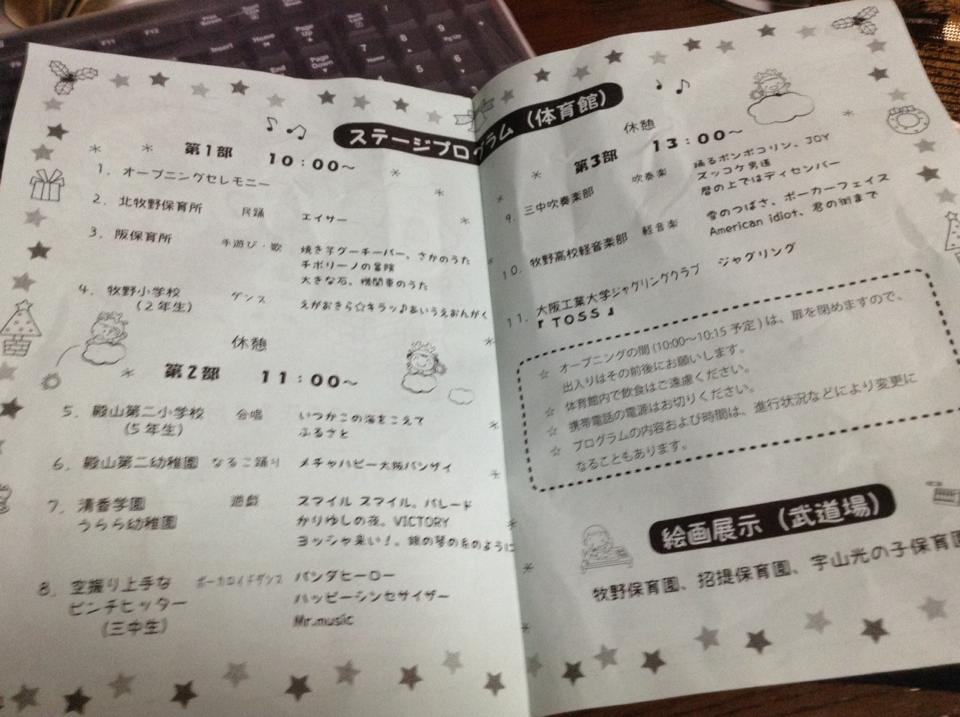 ステージプログラム（体育館）
第1部 10：00～
1. オープニングセレモニー
2. 北牧野保育所 民踊 エイサー
3. 阪保育所 手遊び・歌 焼き芋グーチーパー、さかのうた
チポリーノの冒険
大きな石、機関車のうた
4. 牧野小学校 ダンス えがおきら☆キラッ♪あいうえおんがく
（2年生）
休憩
第2部 11：00～
5. 殿山第二小学校 合唱 いつかこの海をこえて
（5年生） ふるさと
6. 殿山第二幼稚園 なるこ踊り メチャハピー大阪バンザイ
7. 清香学園 遊戯 スマイル スマイル。パレード
うらら幼稚園 かりゆしの夜。VICTORY
ヨッシャ来い！。銀の琴の糸のように
8. 空振り上手な ボーカロイドダンス パンダヒーロー
ピンチヒッター ハッピーシンセサイザー
（三中生） Mr.music
休憩
第3部 13：00～
9. 三中吹奏楽部 吹奏楽 踊るポンポコリン、JOY
ズッコケ男道
暦の上ではディセンバー
10. 牧野高校軽音楽部 軽音楽 雪のつばさ、ポーカーフェイス
American idiot、君の街まで
11. 大阪工業大学ジャグリングクラブ ジャグリング
『TOSS』
☆ オープニングの間(10:00～10:15 予定)は、扉を閉めますので、
出入りはその前後にお願いします。
☆ 体育館内で飲食はご遠慮ください。
☆ 携帯電話の電源はお切りください。
☆ プログラムの内容および時間は、進行状況などにより変更に
なることもあります。
絵画展示（武道場）
牧野保育園、招提保育園、宇山光の子保育園